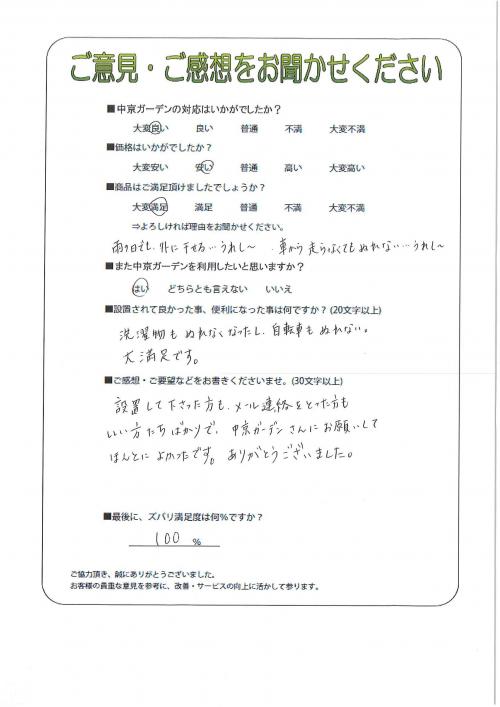 ご意見・ご感想をお聞かせください
■中京ガーデンの対応はいかがでしたか？
大変良い 良い 普通 不満 大変不満
■価格はいかがでしたか？
大変安い 安い 普通 高い 大変高い
■商品はご満足頂けましたでしょうか？
大変満足 満足 普通 不満 大変不満
⇒よろしければ理由をお聞かせください。
雨の日でも、外に干せる…うれし〜 車から走らなくてもぬれない…うれし〜
■また中京ガーデンを利用したいと思いますか？
はい どちらとも言えない いいえ
■設置されて良かった事、便利になった事は何ですか？(20文字以上)
洗濯物もぬれなくなったし、自転車もぬれない。
大満足です。
■ご感想・ご要望などをお書きくださいませ。(30文字以上)
設置して下さった方も、メール連絡をとった方も
いい方たちばかりで、中京ガーデンさんにお願いして
ほんとによかったです。ありがとうございました。
■最後に、ズバリ満足度は何％ですか？
100 %
ご協力頂き、誠にありがとうございました。
お客様の貴重な意見を参考に、改善・サービスの向上に活かして参ります。